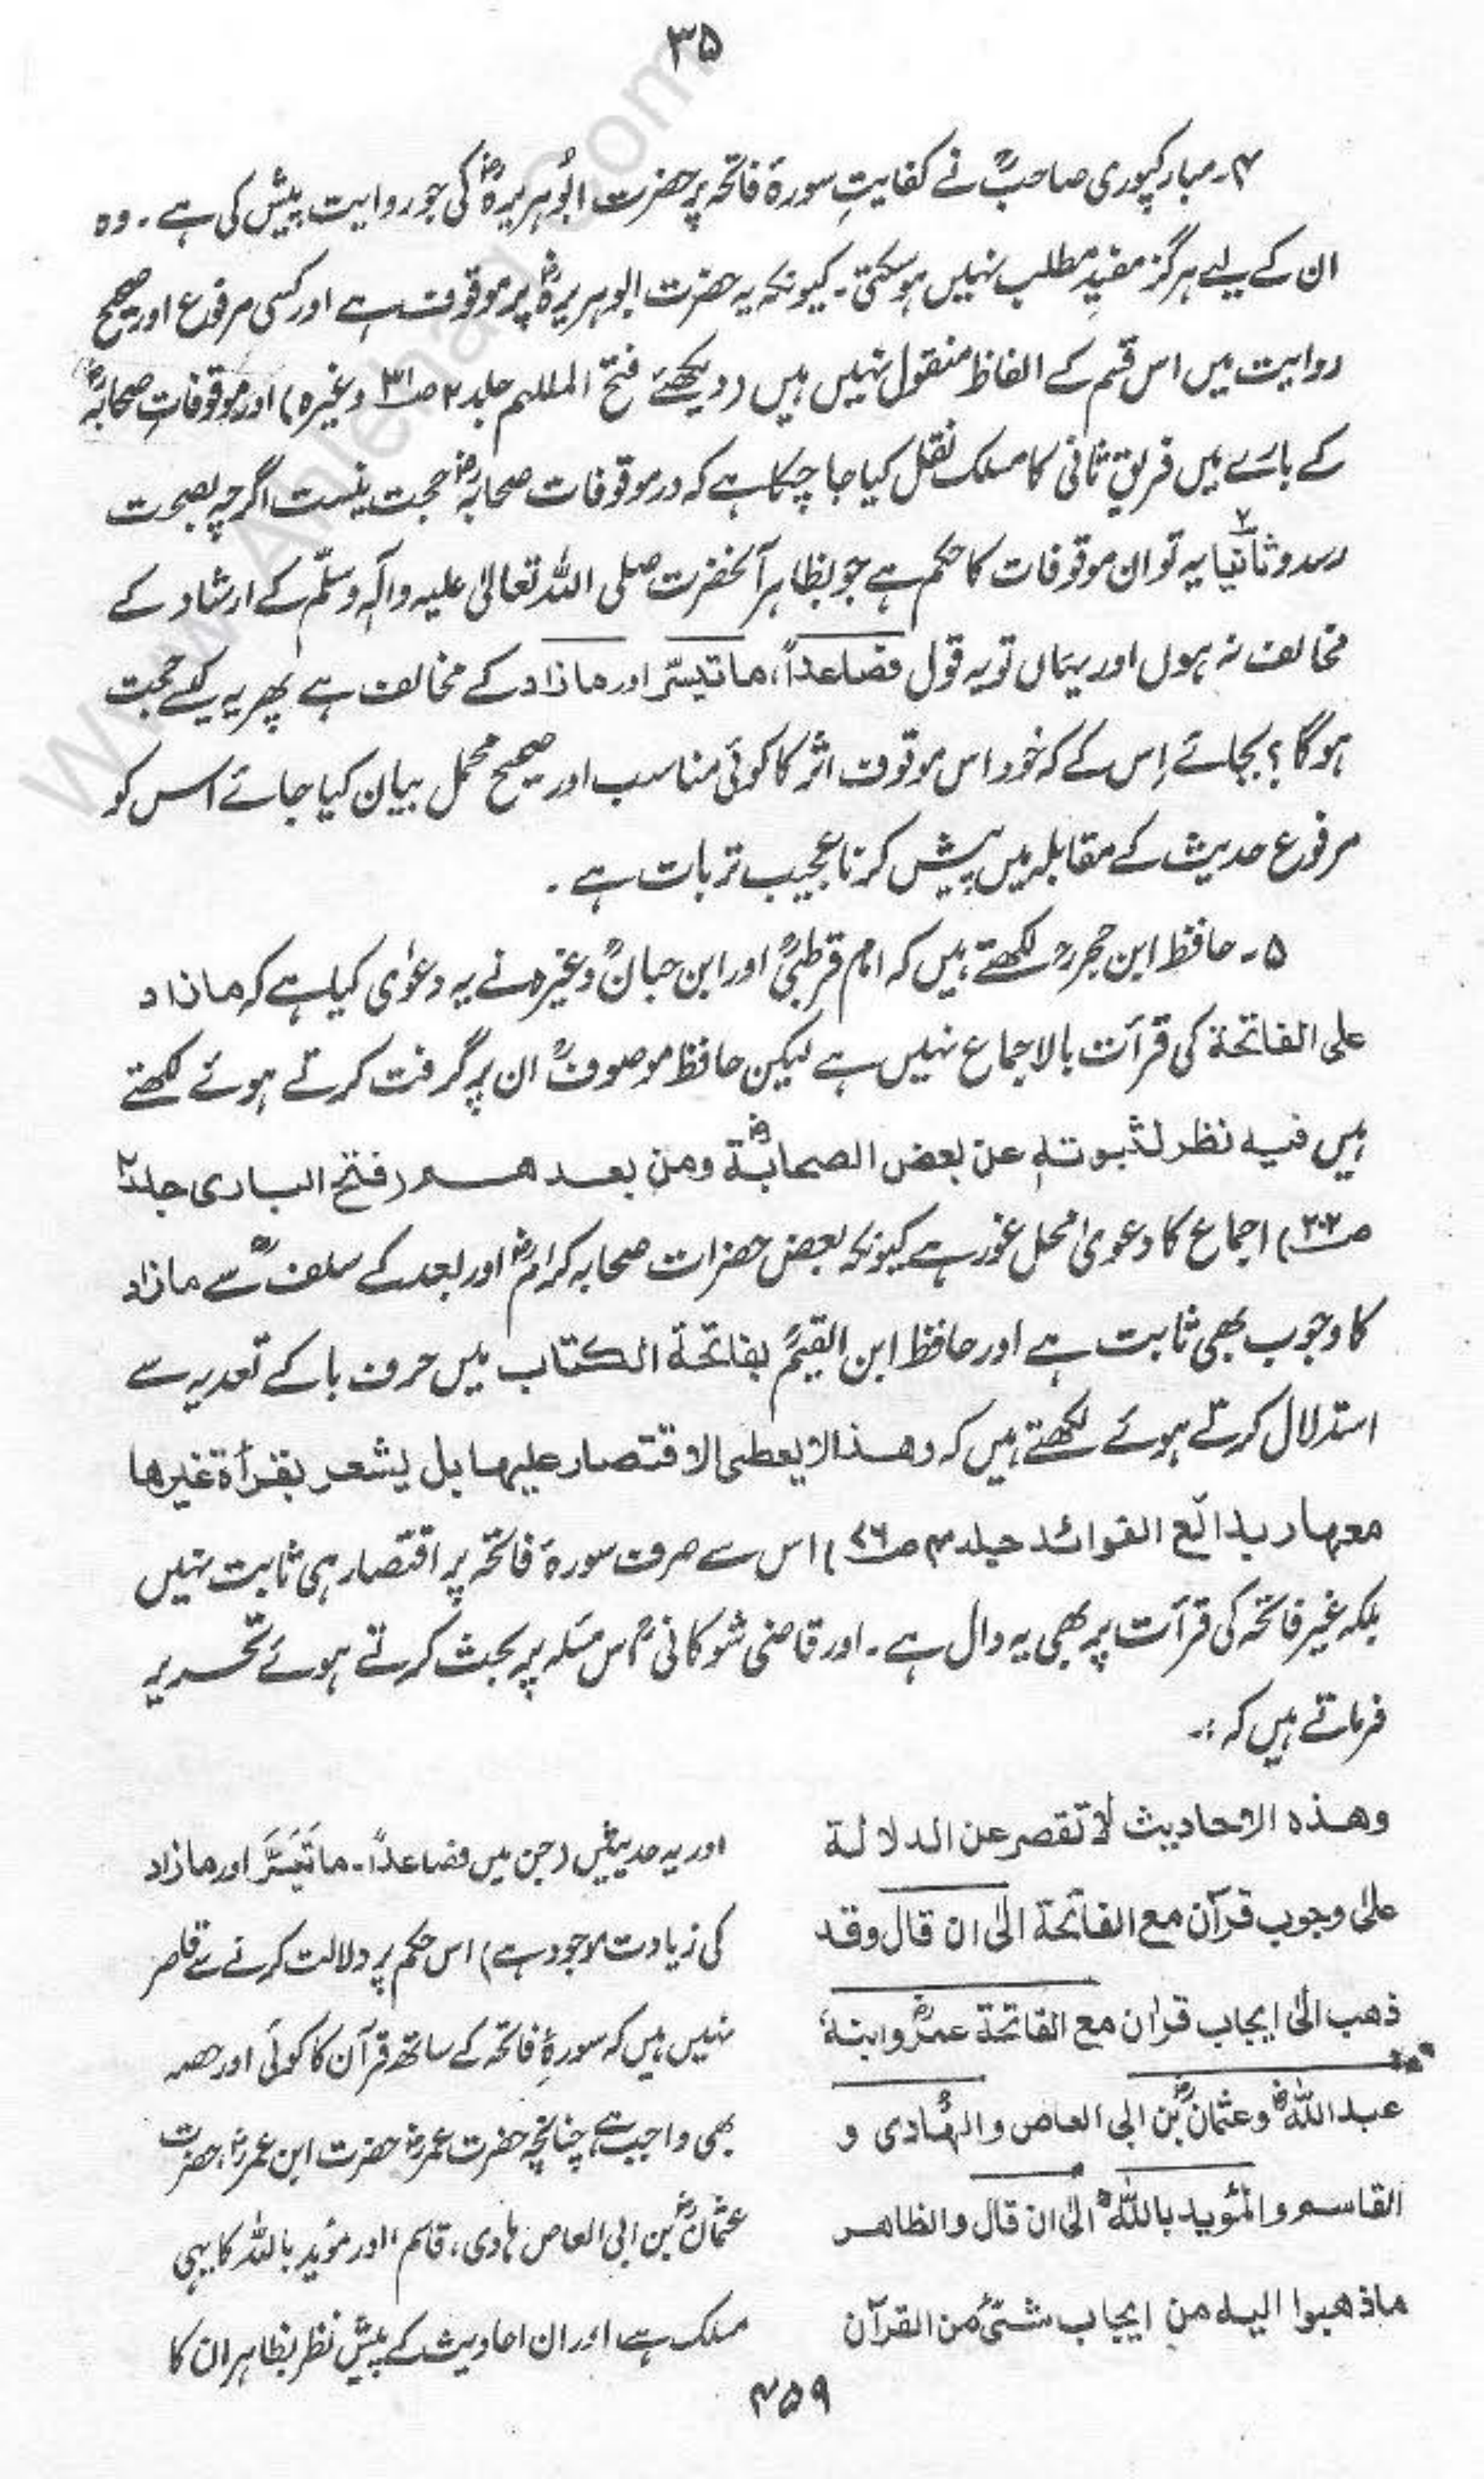 ۳۵
۴۔ مبارکپوری صاحبؒ نے کفایتِ سورۂ فاتحہ پر حضرت ابُوہریرہؓ کی جو روایت پیش کی ہے۔ وہ
ان کے لیے ہرگز مفیدِ مطلب نہیں ہو سکتی۔ کیونکہ یہ حضرت ابوہریرہؓ پر موقوف ہے اور کسی مرفوع اور صحیح
روایت میں اس قسم کے الفاظ منقول نہیں ہیں (دیکھئے فتح الملہم جلد ۲ ص۳۱ وغیرہ) اور موقوفاتِ صحابہؓ
کے بارے میں فریقِ ثانی کا مسلک نقل کیا جا چکا ہے کہ در موقوفات صحابہؓ حجت نیست اگرچہ بصحت
رسد و ثانیاً یہ تو ان موقوفات کا حکم ہے جو بظاہر آنحضرت صلی اللہ تعالیٰ علیہ وآلہٖ وسلّم کے ارشاد کے
مخالف نہ ہوں اور یہاں تو یہ قول فصاعداً، ماتیسّر اور مازاد کے مخالف ہے پھر یہ کیسے حجت
ہوگا؟ بجائے اِس کے کہ خود اس موقوف اثر کا کوئی مناسب اور صحیح محمل بیان کیا جائے اس کو
مرفوع حدیث کے مقابلہ میں پیش کرنا عجیب تر بات ہے۔
۵۔ حافظ ابن حجرؒ لکھتے ہیں کہ امام قرطبیؒ اور ابن حبانؒ وغیرہ نے یہ دعوٰی کیا ہے کہ مازاد
علی الفاتحة کی قرآت بالاجماع نہیں ہے لیکن حافظ موصوفؒ ان پر گرفت کرتے ہوئے لکھتے
ہیں فیہ نظر لثبوتہٖ عن بعض الصحابةؓ ومن بعدھم (فتح الباری جلد ۲
ص۲۰۲) اجماع کا دعویٰ محل غور ہے کیونکہ بعض حضرات صحابہ کرامؓ اور بعد کے سلفؒ سے مازاد
کا وجوب بھی ثابت ہے اور حافظ ابن القیمؒ بفاتحة الکتاب میں حرف با کے تعدیہ سے
استدلال کرتے ہوئے لکھتے ہیں کہ وھذا لا یعطی الاقتصار علیھا بل یشعر بقرأة غیرھا
معھا (بدائع الفوائد جلد ۴ ص۷۶) اس سے صرف سورۂ فاتحہ پر اقتصار ہی ثابت نہیں
بلکہ غیر فاتحہ کی قرآت پر بھی یہ دال ہے۔ اور قاضی شوکانیؒ اس مسئلہ پر بحث کرتے ہوئے تحریر
فرماتے ہیں کہ :۔
وھذہ الاحادیث لا تقصر عن الدلالة
علیٰ وجوب قرآن مع الفاتحة الیٰ ان قال وقد
ذھب الیٰ ایجاب قراٰن مع الفاتحة عمرؓ وابنہٗ
عبداللہؓ وعثمانؓ بن ابی العاص والہادی و
القاسم والمؤید باللہؒ الیٰ ان قال والظاھر
ماذھبوا الیہ من ایجاب شئ من القرآن
اور یہ حدیثیں (جن میں فصاعداً۔ ماتَیَسَّرَ اور مازاد
کی زیادت موجود ہے) اس حکم پر دلالت کرنے سے قاصر
نہیں ہیں کہ سورۂ فاتحہ کے ساتھ قرآن کا کوئی اور حصہ
بھی واجب ہے چنانچہ حضرت عمرؓ حضرت ابن عمرؓ، حضرت
عثمانؓ بن ابی العاص ہادی، قاسم اور مؤید باللہ کا یہی
مسلک ہے اور ان احادیث کے پیش نظر بظاہر ان کا
۴۵۹
www.Ahlehaq.Com